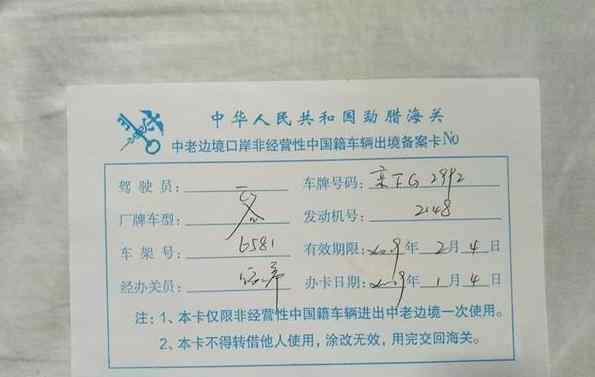 中华人民共和国勐腊海关
中老边境口岸非经营性中国籍车辆出境备案卡 No
驾驶员: 车牌号码: 2992
厂牌车型: 发动机号: 2148
车架号: 6581 有效期限: 2019年2月4日
经办关员: 办卡日期: 2019年1月4日
注:1、本卡仅限非经营性中国籍车辆进出中老边境一次使用。
2、本卡不得转借他人使用,涂改无效,用完交回海关。